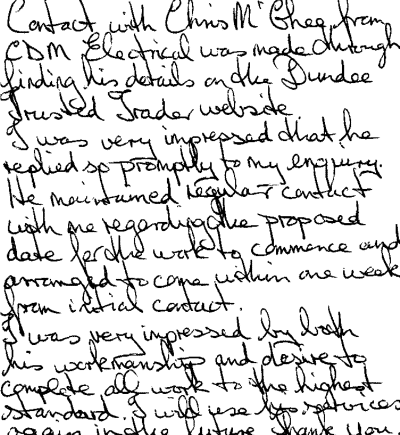 Contact with Chris McGhee from
CDM Electrical was made through
finding his details on the Dundee
Trusted Trader website
I was very impressed that he
replied so promptly to my enquiry.
He maintained regular contact
with me regarding the proposed
date for the work to commence and
arranged to come within one week
from initial contact.
I was very impressed by both
his workmanship and desire to
complete all work to the highest
standard. I will use his services
again in the future Thank You.